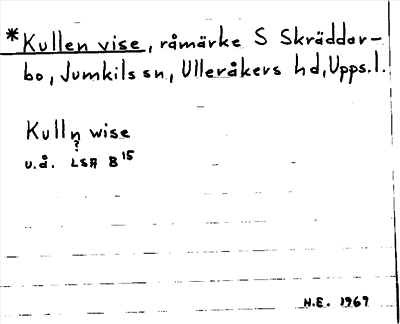 *Kullen vise, råmärke S Skräddar-
bo, Jumkils sn, Ulleråkers hd, Upps. l.
Kulln wise
?
u.å. LSA B 15
H.E. 1969